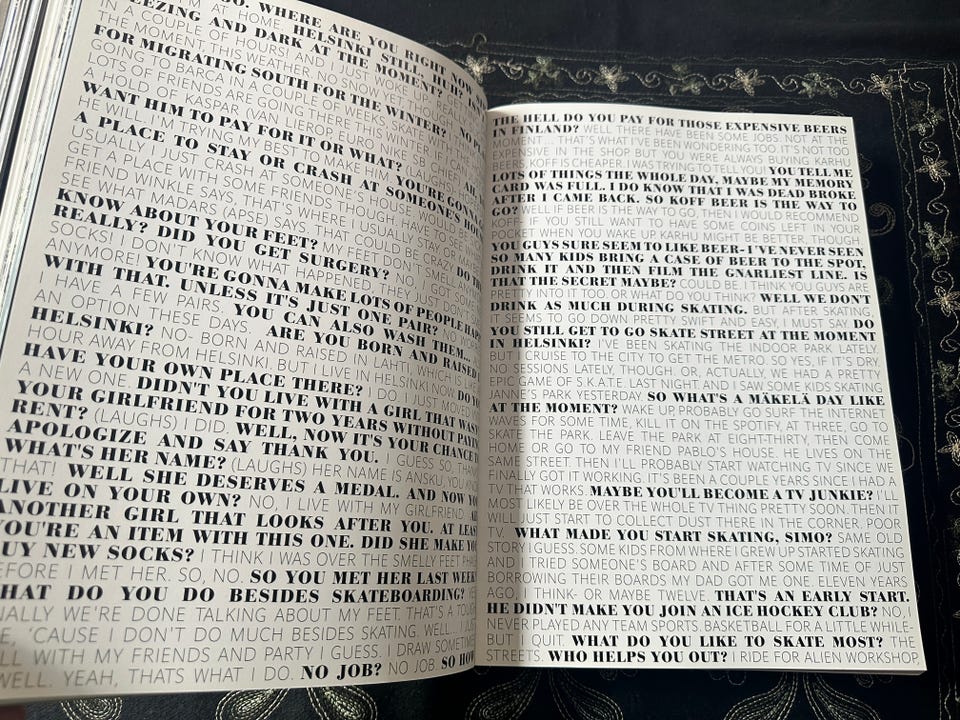 SO. WHERE ARE YOU RIGHT NOW
I'M AT HOME. HELSINKI STILL, HUH?
FREEZING AND DARK AT THE MOMENT? GET
IN A COUPLE OF HOURS! AND I JUST WOKE UP.
THE MOMENT, THIS WEATHER. NO SNOW YET. THE REAL
FOR MIGRATING SOUTH FOR THE WINTER?
GOING TO BARCA IN A COUPLE OF WEEKS.
LOTS OF FRIENDS ARE GOING THERE THIS WINTER.
A HOLD OF KASPAR (VAN LIEROP, EURO NIKE SB CHIEF).
WANT HIM TO PAY FOR IT OR WHAT? (LAUGHS)
HE WILL. I'M TRYING MY BEST TO MAKE HIM. YOU'RE GONNA
A PLACE TO STAY OR CRASH AT SOMEONE'S HOUSE
USUALLY I JUST CRASH AT SOMEONE'S HOUSE. WOULD BE
GET A PLACE WITH SOME FRIENDS THOUGH.
FRIEND WINKLE SAYS, THAT'S WHERE I USUALLY STAY.
SEE WHAT MADARS (APSE) SAYS. THAT COULD BE CRAZY
KNOW ABOUT YOUR FEET? MY FEET DON'T SMELL
REALLY? DID YOU GET SURGERY? NO, I GOT SOME
SOCKS! I DON'T KNOW WHAT HAPPENED. THEY JUST DON'T
ANYMORE! YOU'RE GONNA MAKE LOTS OF PEOPLE HAPPY
WITH THAT. UNLESS IT'S JUST ONE PAIR? NO
I HAVE A FEW PAIRS. YOU CAN ALSO WASH THEM...
AN OPTION THESE DAYS. ARE YOU BORN AND RAISED
HELSINKI? NO. BORN AND RAISED IN LAHTI, WHICH IS LIKE
HOUR AWAY FROM HELSINKI. BUT I LIVE IN HELSINKI NOW.
HAVE YOUR OWN PLACE THERE? I DO. I JUST MOVED
A NEW ONE. DIDN'T YOU LIVE WITH A GIRL THAT WASN'T
YOUR GIRLFRIEND FOR TWO YEARS WITHOUT PAYING
RENT? (LAUGHS) I DID. WELL, NOW IT'S YOUR CHANCE
APOLOGIZE AND SAY THANK YOU. I GUESS SO,
WHAT'S HER NAME? (LAUGHS) HER NAME IS ANSKU.
THAT! WELL SHE DESERVES A MEDAL. AND NOW YOU
LIVE ON YOUR OWN? NO, I LIVE WITH MY GIRLFRIEND.
ANOTHER GIRL THAT LOOKS AFTER YOU. AT LEAST
YOU'RE AN ITEM WITH THIS ONE. DID SHE MAKE YOU
BUY NEW SOCKS? I THINK I WAS OVER THE SMELLY FEET
BEFORE I MET HER. SO, NO. SO YOU MET HER LAST WEEK
WHAT DO YOU DO BESIDES SKATEBOARDING?
WE'RE DONE TALKING ABOUT MY FEET. THAT'S A TOUGH
'CAUSE I DON'T DO MUCH BESIDES SKATING. WELL...
WITH MY FRIENDS AND PARTY I GUESS. I DRAW SOMETIMES
WELL. YEAH, THATS WHAT I DO. NO JOB? NO JOB. SO HOW
THE HELL DO YOU PAY FOR THOSE EXPENSIVE BEERS
IN FINLAND? WELL THERE HAVE BEEN SOME JOBS. NOT AT THE
MOMENT... THAT'S WHAT I'VE BEEN WONDERING TOO. IT'S NOT TOO
EXPENSIVE IN THE SHOP BUT YOU WERE ALWAYS BUYING KARHU
BEERS, KOFF IS CHEAPER. I WAS TRYING TO TELL YOU! YOU TELL ME
LOTS OF THINGS THE WHOLE DAY, MAYBE MY MEMORY
CARD WAS FULL. I DO KNOW THAT I WAS DEAD BROKE
AFTER I CAME BACK. SO KOFF BEER IS THE WAY TO
GO? WELL IF BEER IS THE WAY TO GO, THEN I WOULD RECOMMEND
KOFF- IF YOU STILL WANT TO HAVE SOME COINS LEFT IN YOUR
POCKET WHEN YOU WAKE UP. KARHU MIGHT BE BETTER, THOUGH.
YOU GUYS SURE SEEM TO LIKE BEER- I'VE NEVER SEEN
SO MANY KIDS BRING A CASE OF BEER TO THE SPOT,
DRINK IT AND THEN FILM THE GNARLIEST LINE. IS
THAT THE SECRET MAYBE? COULD BE. I THINK YOU GUYS ARE
PRETTY INTO IT TOO, OR WHAT DO YOU THINK? WELL WE DON'T
DRINK AS MUCH DURING SKATING. BUT AFTER SKATING,
IT SEEMS TO GO DOWN PRETTY SWIFT AND EASY, I MUST SAY. DO
YOU STILL GET TO GO SKATE STREET AT THE MOMENT
IN HELSINKI? I'VE BEEN SKATING THE INDOOR PARK LATELY.
BUT I CRUISE TO THE CITY TO GET THE METRO. SO YES, IF IT'S DRY.
NO SESSIONS LATELY, THOUGH. OR, ACTUALLY, WE HAD A PRETTY
EPIC GAME OF S.K.A.T.E. LAST NIGHT. AND I SAW SOME KIDS SKATING
JANNE'S PARK YESTERDAY. SO WHAT'S A MÄKELÄ DAY LIKE
AT THE MOMENT? WAKE UP, PROBABLY GO SURF THE INTERNET
WAVES FOR SOME TIME, KILL IT ON THE SPOTIFY, AT THREE, GO TO
SKATE THE PARK. LEAVE THE PARK AT EIGHT-THIRTY, THEN COME
HOME OR GO TO MY FRIEND PABLO'S HOUSE. HE LIVES ON THE
SAME STREET. THEN I'LL PROBABLY START WATCHING TV SINCE WE
FINALLY GOT IT WORKING. IT'S BEEN A COUPLE YEARS SINCE I HAD A
TV THAT WORKS. MAYBE YOU'LL BECOME A TV JUNKIE? I'LL
MOST LIKELY BE OVER THE WHOLE TV THING PRETTY SOON. THEN IT
WILL JUST START TO COLLECT DUST THERE IN THE CORNER. POOR
TV. WHAT MADE YOU START SKATING, SIMO? SAME OLD
STORY I GUESS. SOME KIDS FROM WHERE I GREW UP STARTED SKATING
AND I TRIED SOMEONE'S BOARD AND AFTER SOME TIME OF JUST
BORROWING THEIR BOARDS MY DAD GOT ME ONE. ELEVEN YEARS
AGO, I THINK- OR MAYBE TWELVE. THAT'S AN EARLY START.
HE DIDN'T MAKE YOU JOIN AN ICE HOCKEY CLUB? NO, I
NEVER PLAYED ANY TEAM SPORTS. BASKETBALL FOR A LITTLE WHILE-
BUT I QUIT. WHAT DO YOU LIKE TO SKATE MOST? THE
STREETS. WHO HELPS YOU OUT? I RIDE FOR ALIEN WORKSHOP,